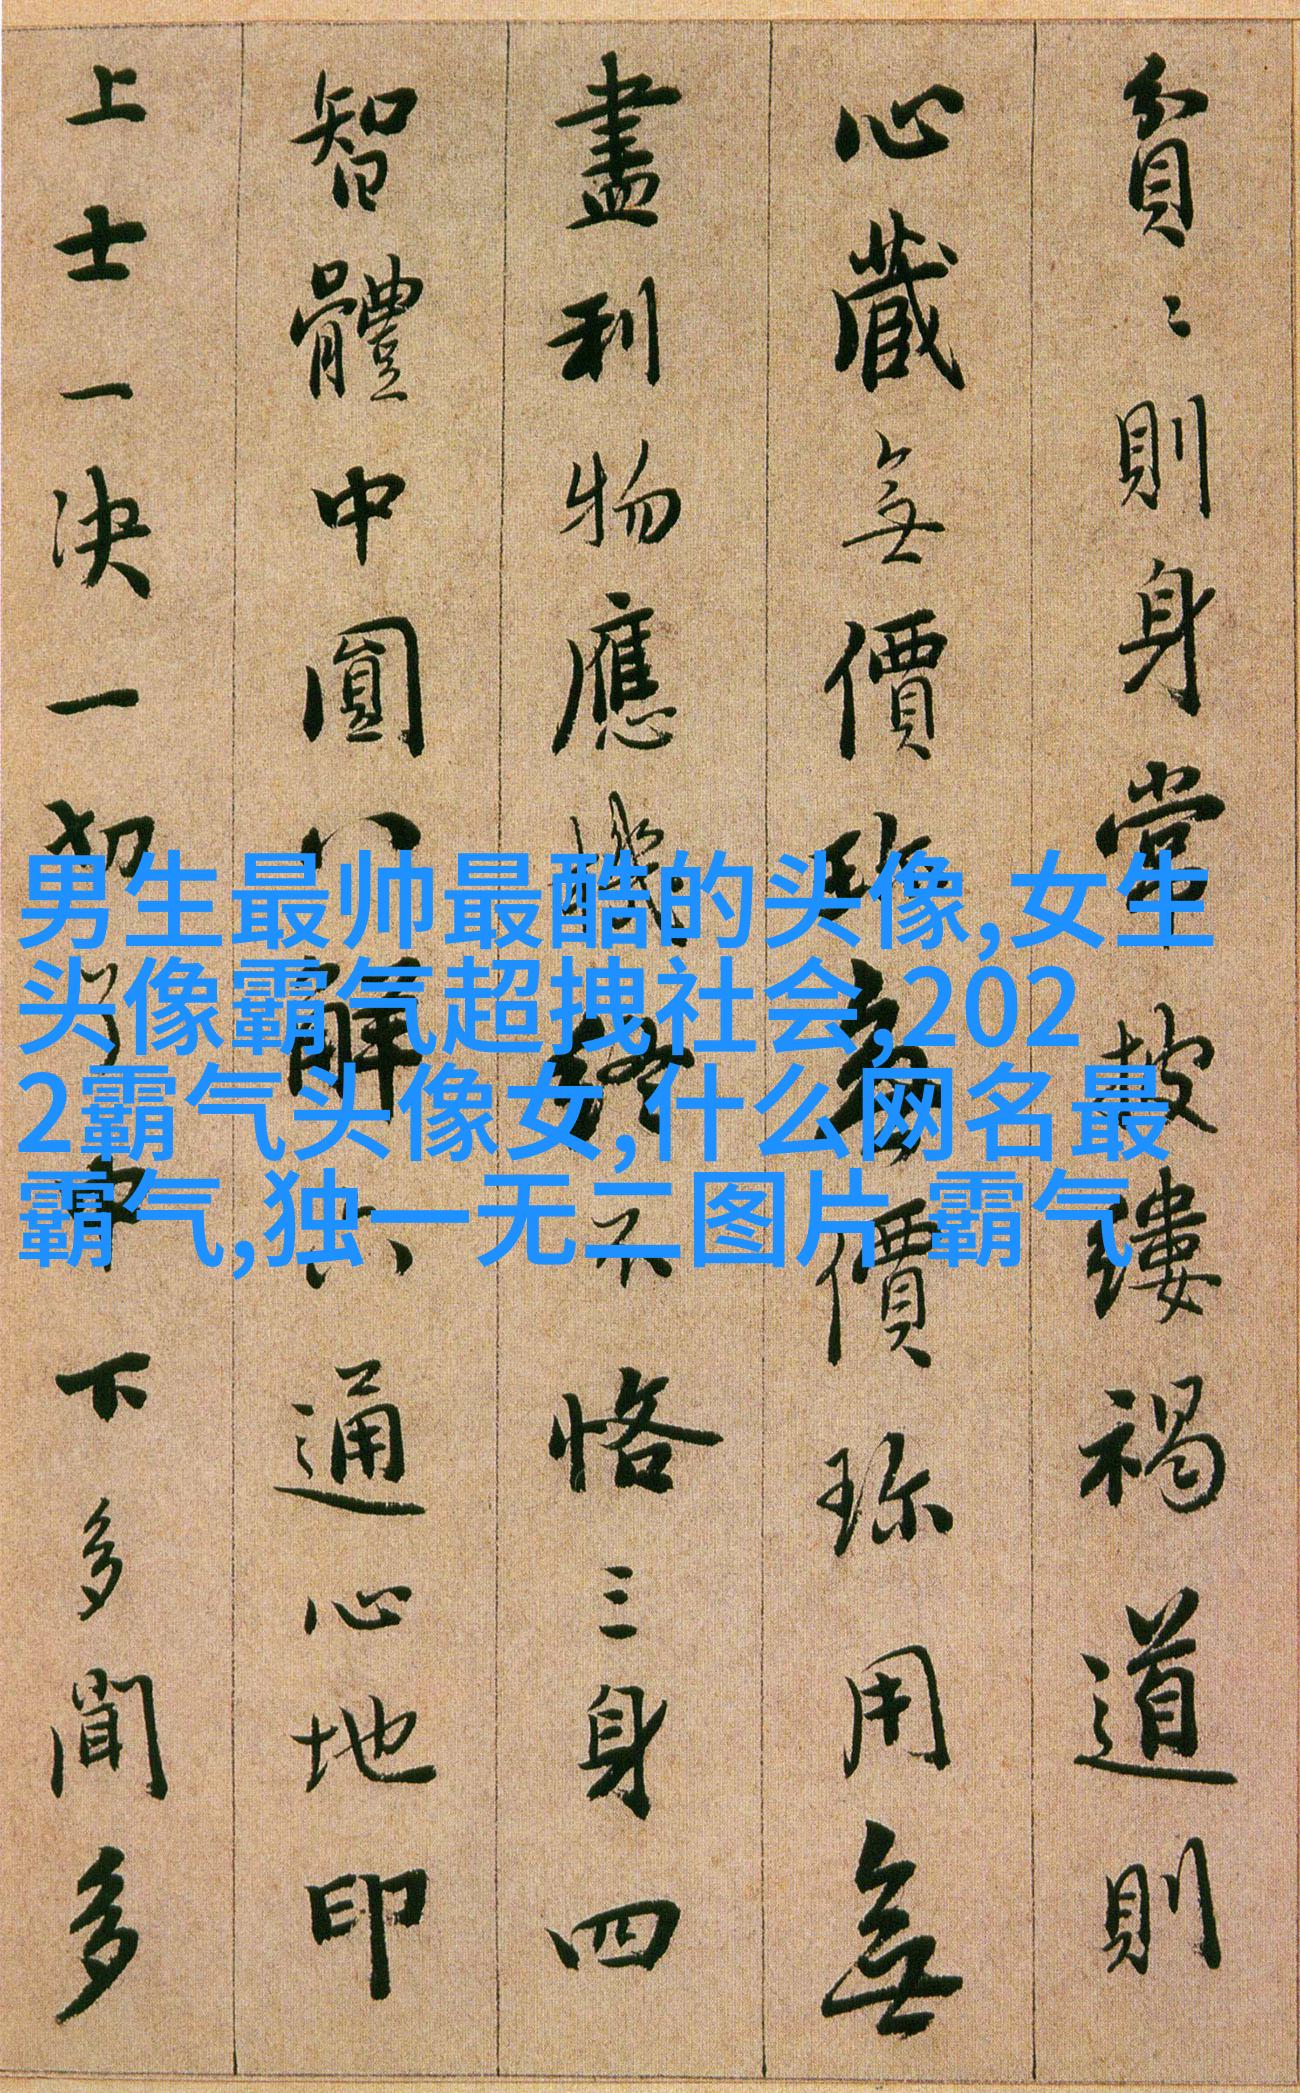 貧〻則身常披縷褐道則
心藏無價珎無價珎用無
盡利物應機終不恪三身四
智體中圓八解六通心地印
上士一决一切了中下多聞多
男生最帅最酷的头像,女生
头像霸气超拽社会,202
2霸气头像女,什么网名最
霸气,独一无二图片 霸气